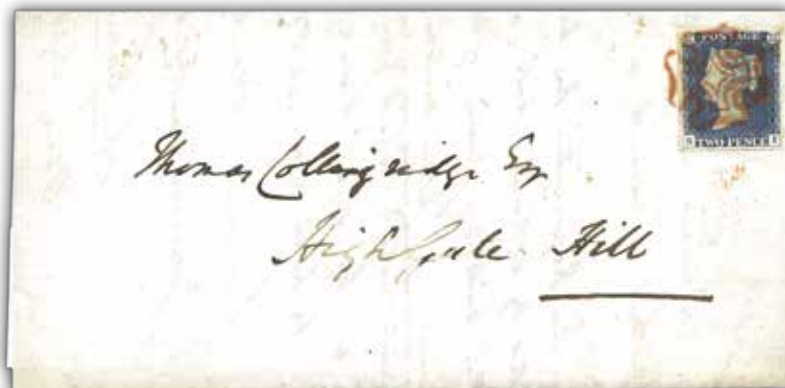 POSTAGE
TWO PENCE
Thomas Collingridge Esq
HighGate Hill